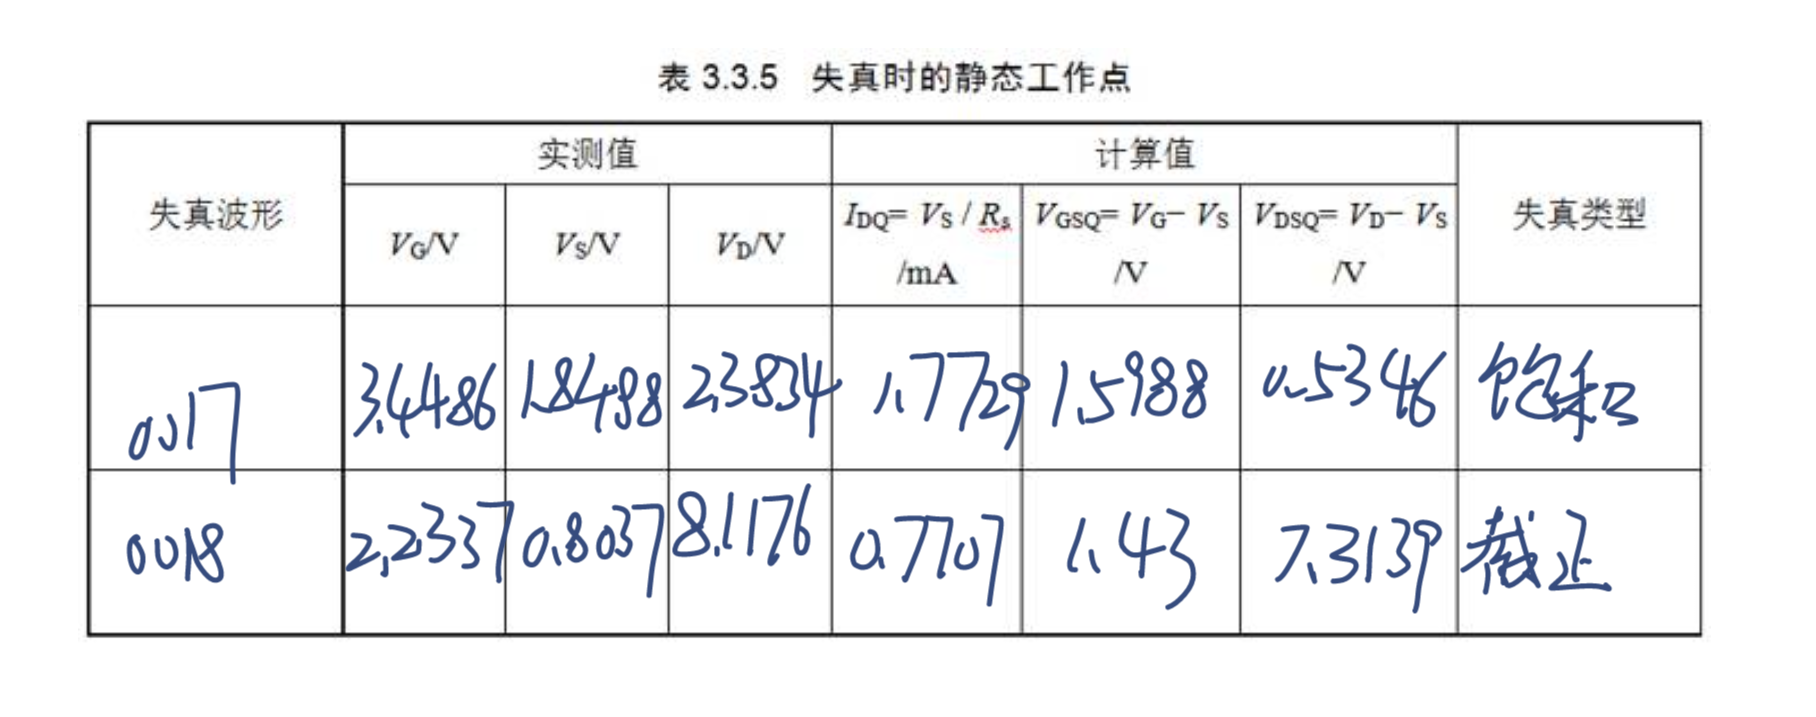 表 3.3.5 失真时的静态工作点
失真波形 实测值 计算值 失真类型
VG/V VS/V VD/V IDQ= VS / Rs /mA VGSQ= VG− VS /V VDSQ= VD− VS /V
0017 3.4486 1.8498 2.3834 1.7729 1.5988 0.5346 饱和
0018 2.2337 0.8037 8.1176 0.7707 1.43 7.3139 截止